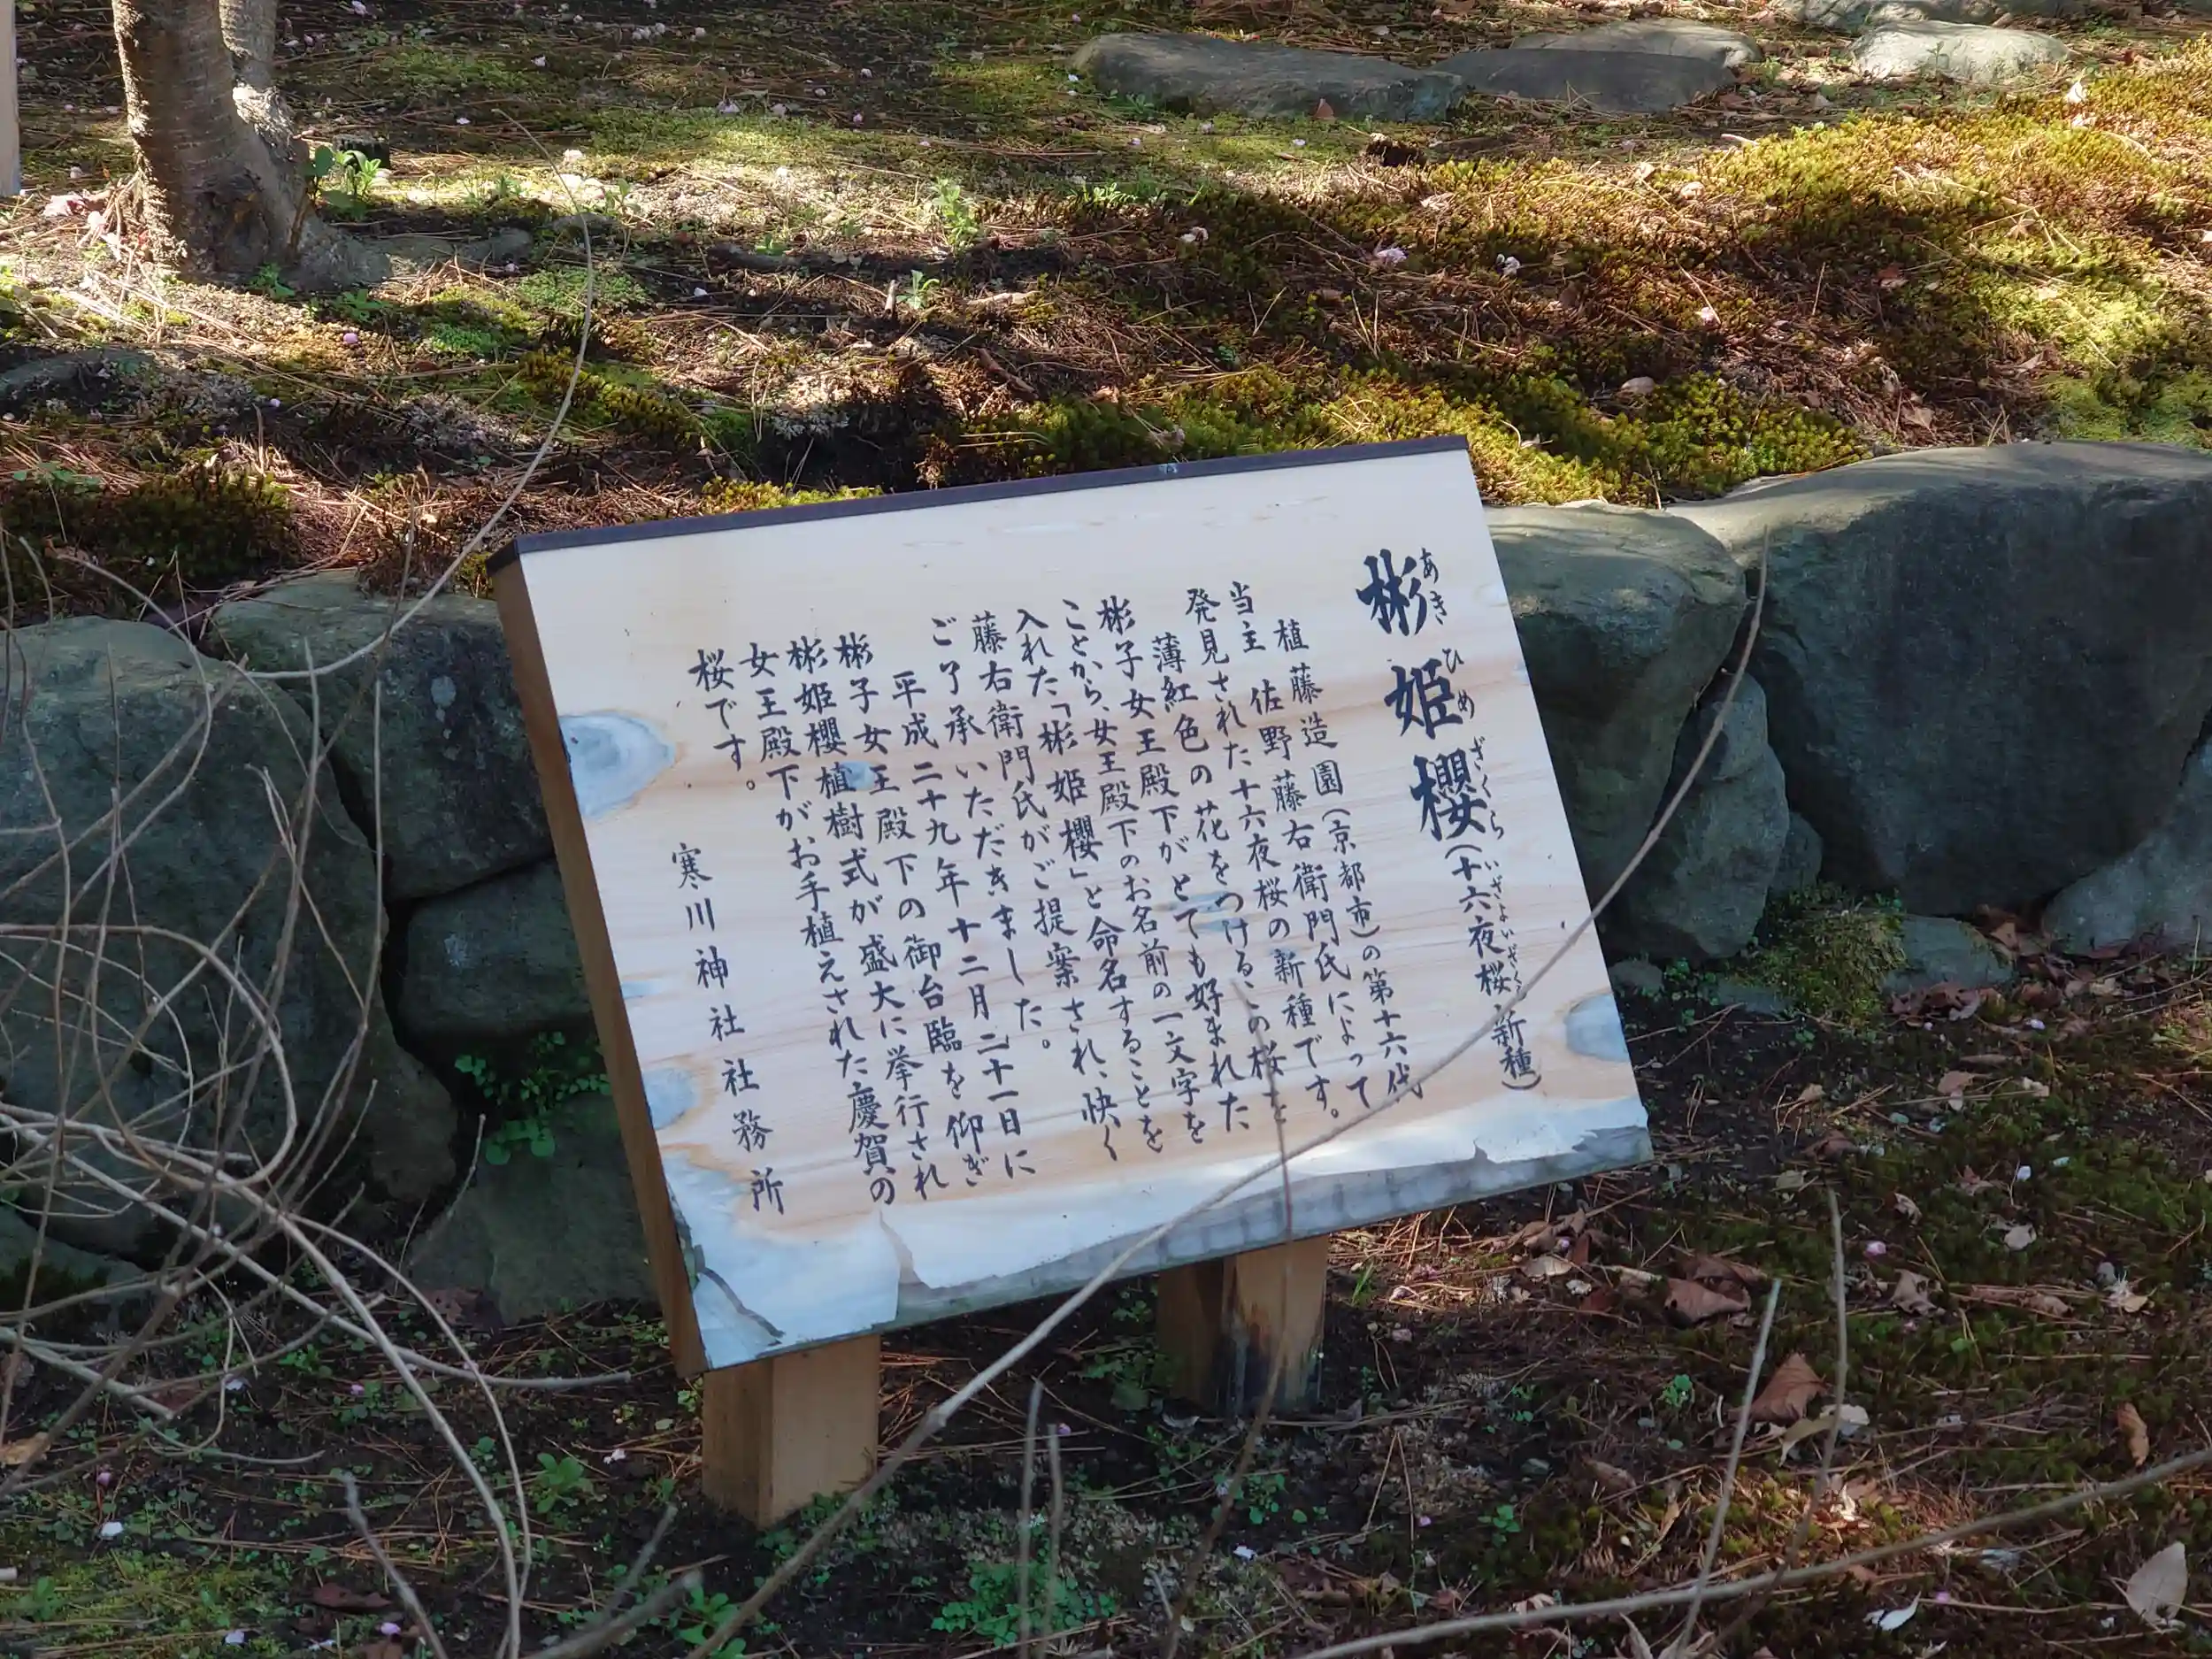 彬姫櫻(十六夜桜 新種)
あきひめざくら いざよいざくら
植藤造園(京都市)の第十六代
当主 佐野藤右衛門氏によって
発見された十六夜桜の新種です。
薄紅色の花をつけるこの桜を
彬子女王殿下がとても好まれた
ことから、女王殿下のお名前の一文字を
入れた「彬姫櫻」と命名することを
藤右衛門氏がご提案され、快く
ご了承いただきました。
平成二十九年十二月二十一日に
彬子女王殿下の御台臨を仰ぎ
彬姫櫻植樹式が盛大に挙行され
女王殿下がお手植えされた慶賀の
桜です。
寒川神社社務所